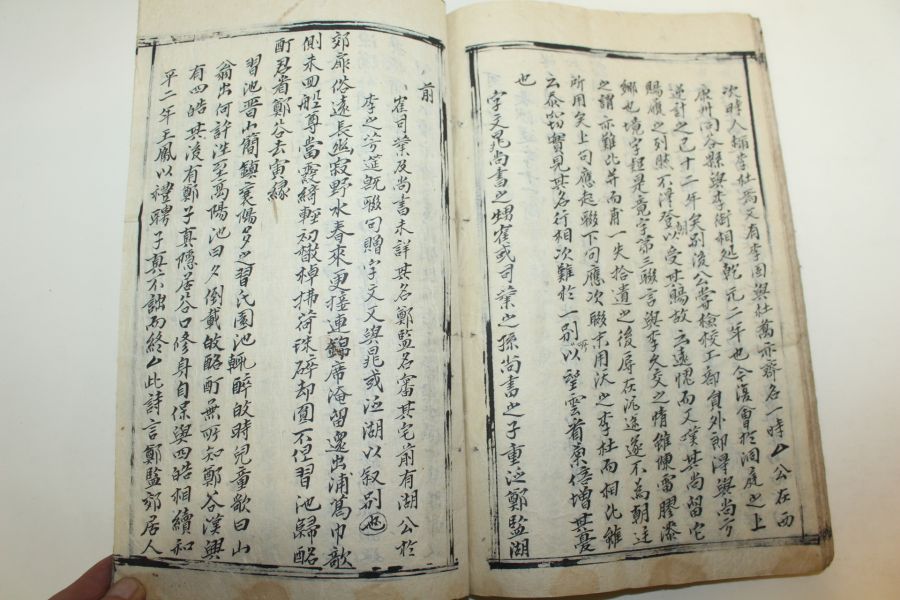 次時人稱李杜焉又有李固與杜喬亦齊名一時厶公在西
康州同谷縣與李銜相処乾元二年也今復會於洞庭之上
逆計之已十二年矣別後公嘗檢校工部負外郎淂與尚方
賜履之列然不淂登朝以受其賜故云遠愧而又業其尚留它
鄉也境字程是竟字第三聯言與李久交之情雖陳雷膠漆
之謂亦難比并而甫一失拾遺之後辱在泥途遂不為朝廷
所用矣上句應起聯下句應次聯末用汰之李杜而相比雖
云忝竊實見其名行相次難於一別所以望雲省倍增其憂
也
宇文晁尚書之甥崔彧司業之孫尚書之子重泛鄭監湖
前
崔司業及尚書未詳其名鄭監名審其宅前有湖公於
李之芳筵既聯句贈宇文又與晁或泛湖以叙別也
郊扉俗遠長幽寂野水春來更接連錦席淹留還出浦葛巾欹
側未囬船尊當霞綺輕初散棹拂荷珠碎却圓不但習池歸酩
酊君看鄭谷去寅縁
習池晋山簡鎮襄陽多之習氏園池輒醉故時兒童歌曰山
翁出何許往至高陽池日夕倒載皈酩酊無所知鄭谷漢興
有四皓其後有鄭子真隱居谷口修身自保與四皓相續和
平二年王鳳以禮聘子真不詘而終厶此詩言鄭監郊居人